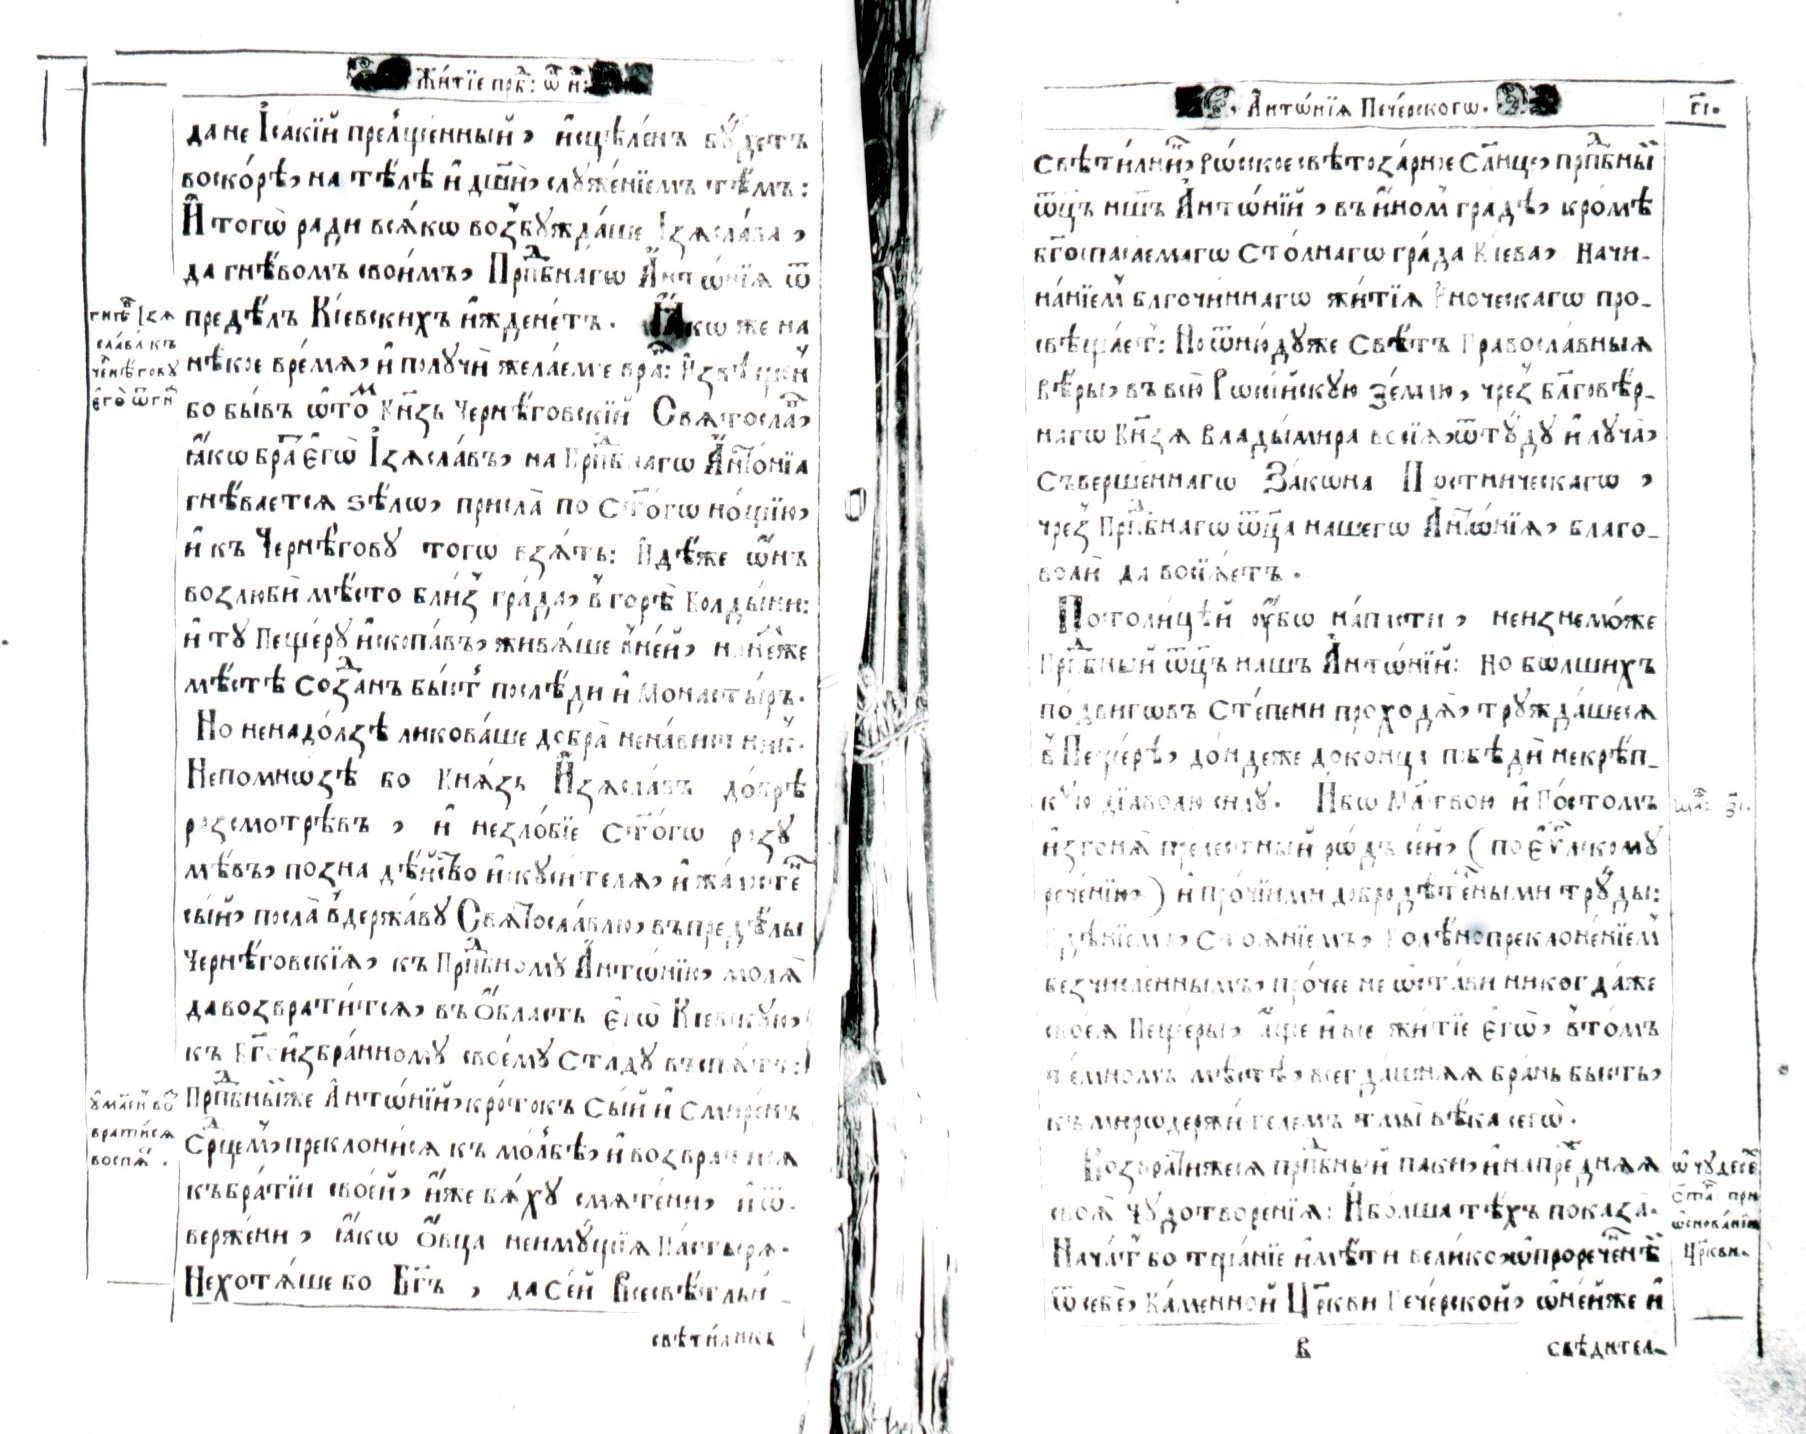 Жи́тїе прп҃д: ѿ н҃:
да не І҆са́кїй преⷧ҇ще́нный, и҆сцѣле́нъ бꙋ́детъ
воско́рѣ, на тѣ́лѣ и҆ дш҃ѝ, слꙋже́нїемъ тѣ́мъ:
И҆ тогѡ̀ ради всѧ́кѡ воз̾бꙋжда́ше І҆зѧсла́ва,
да гнѣ́вомъ свои́мъ, Прпⷣбнагѡ А҆нтѡ́нїѧ ѿ
предѣ́лъ Кі́евскихъ и҆жденетъ. Ꙗ҆́кѡ же на
нѣ́кое вре́мѧ, и҆ получѝ жела́емое вра́г: И҆звѣще́н
бо бы́въ ѡ҆ то́м Кнѧ҃зь Черни́говскїй Свѧтосла́в,
ꙗ҆́кѡ бра҃ є҆гѡ̀ І҆зѧсла́въ, на Прпⷣбнагѡ А҆нто́нїа
гнѣ́ваетсѧ ѕѣ́лѡ, присла̀ по Ст҃о́гѡ но́щїю,
и҆ къ Черни́говꙋ того̀ взѧ́ть: И҆дѣ́же ѻ҆́нъ
возлюбѝ мѣ́сто бли́з̾ гра́да, в̾ горѣ̀ Болды́ни:
и҆ тꙋ Пеще́рꙋ и҆скопа́въ, живѧ́ше в̾не́й, на не́мже
мѣ́стѣ со́зданъ бы́стⸯ послѣ́ди и҆ Монасты́рь.
Но ненадо́лзѣ ликова́ше добра̀ нена́вистник.
Непомно́зѣ бо Кнѧ́зь И҆зѧсла́въ до́брѣ
разсмотрѣ́въ, и҆ незло́бїе Ст҃о́гѡ разꙋ
мѣ́въ, позна дѣ́йство и҆скꙋси́телѧ, и҆ жа́лостен
сы́й, посла̀ в̾держа́вꙋ Свѧтосла́влю, въ предѣ́лы
Черни́говскїѧ, къ Прпⷣбномꙋ А҆нтѡ́нїю, молѧ̀
да возврати́тсѧ, въ Ѻ҆́бласть є҆гѡ̀ Кі́евскꙋю,
къ Бг҃ои҆збра́нномꙋ своемꙋ̀ ста́дꙋ въспѧ́ть:
Прпⷣбны́йже А҆нтѡ́нїй, кро́токъ сы́й и҆ смире́нъ
ср҃цемъ, преклони́сѧ къ мо́лⸯбѣ, и҆ возврати́сѧ
къ бра́тїи свое́й, и҆́же бѧ́хꙋ смѧте́ни, и҆ ѿ-
ве́ржени, ꙗ҆́кѡ Ѻ҆́вца неимꙋ́щїѧ Па́стырѧ.
Нехотѧ́ше бо Бг҃ъ, да се́й Всесвѣ́тлый
свѣти́лникъ
гнѣ́в І҆зѧ
сла́вль къ
че́нѣговꙋ
є҆го̀ ѿгна
ᲂу҆моле́н во
врати́сѧ
воспѧ́т.
А҆нтѡ́нїѧ Пече́рскогѡ.
г҃і.
свѣти́лник, Рѡ́сское свѣтоза́рное Сл҃нце, Прпⷣбный
ѿц҃ъ на́шъ А҆нтѡ́нїй, въ и҆́ном̾ гра́дѣ, кро́мѣ
Бг҃оспаса́емагѡ Сто́лнагѡ гра́да Кі́ева, Начи-
на́нїем̾ бл҃гочи́ннагѡ жи́тїѧ И҆ноческагѡ про-
свѣща́етⸯ: Но ѿню́дꙋже Свѣ́тъ Правосла́вныѧ
Вѣ́ры, въ всю̀ Рѡссі́йскꙋю Зе́млю, чрез̾ бл҃говѣ́р-
нагѡ Кнѧ҃зѧ Влади́мира всїѧ̀, ѿтꙋ́дꙋ и҆ лꙋча̀,
съверше́ннагѡ Зако́на Постническагѡ,
чрез̾ Прпⷣбнагѡ ѿц҃а на́шегѡ А҆нтѡ́нїѧ, благо-
воли да возсїѧ́етъ.
Постоли́цѣй ᲂу҆́бѡ на́пасти, неизнемо́же
Прпⷣбный ѿц҃ъ на́шъ А҆нтѡ́нїй: Но бѡ́лшихъ
по́двигѡвъ сте́пени проходѧ̀, трꙋжда́шесѧ
в̾ Пеще́рѣ, до́ндеже доконца побѣдѝ некрѣ́п-
кꙋю дїа́волю си́лꙋ. И҆́бѡ Мл҃твою и҆ По́стомъ
и҆згонѧ̀ преле́стный рѡ́дъ се́й, (по Є҆ѵⷢ҇лскомꙋ
рече́нїю,) и҆ про́чїими добродѣ́телными трꙋды̀:
Бдѣ́нїемъ, Стоѧ́нїемъ, Колѣнопреклоне́нїем
безчи́сленнымъ, про́чее не ѡ҆ста́ви никогда́же
своеѧ̀ Пеще́ры, а҆́ще и҆ вⸯ житїѐ є҆гѡ̀, в̾ то́мъ
те́мномъ мѣ́стѣ, всегда́шнѧѧ бра́нь бы́сть,
къ мирѡдержи́телемъ тмы̀ вѣ́ка сегѡ̀.
Возврати́жесѧ прпⷣбный паки, и҆ на пре́днѧѧ
своѧ̀ чꙋдотворе́нїѧ: И҆ бо́лша тѣ́хъ показа̀.
Нача́тⸯ бо тща́нїе и҆мѣ́ти вели́кое ѡ҆ прорече́ннѣй
ѿ себѐ, Ка́менной Цр҃кви Пече́рской, ѡ҆ не́йже и҆
в
свѣдител-
мⷴ҇а: з҃і.
ѡ҆ чꙋдесе́х
ст҃а: при
ѡ҆снова́нїи
Цр҃кви.